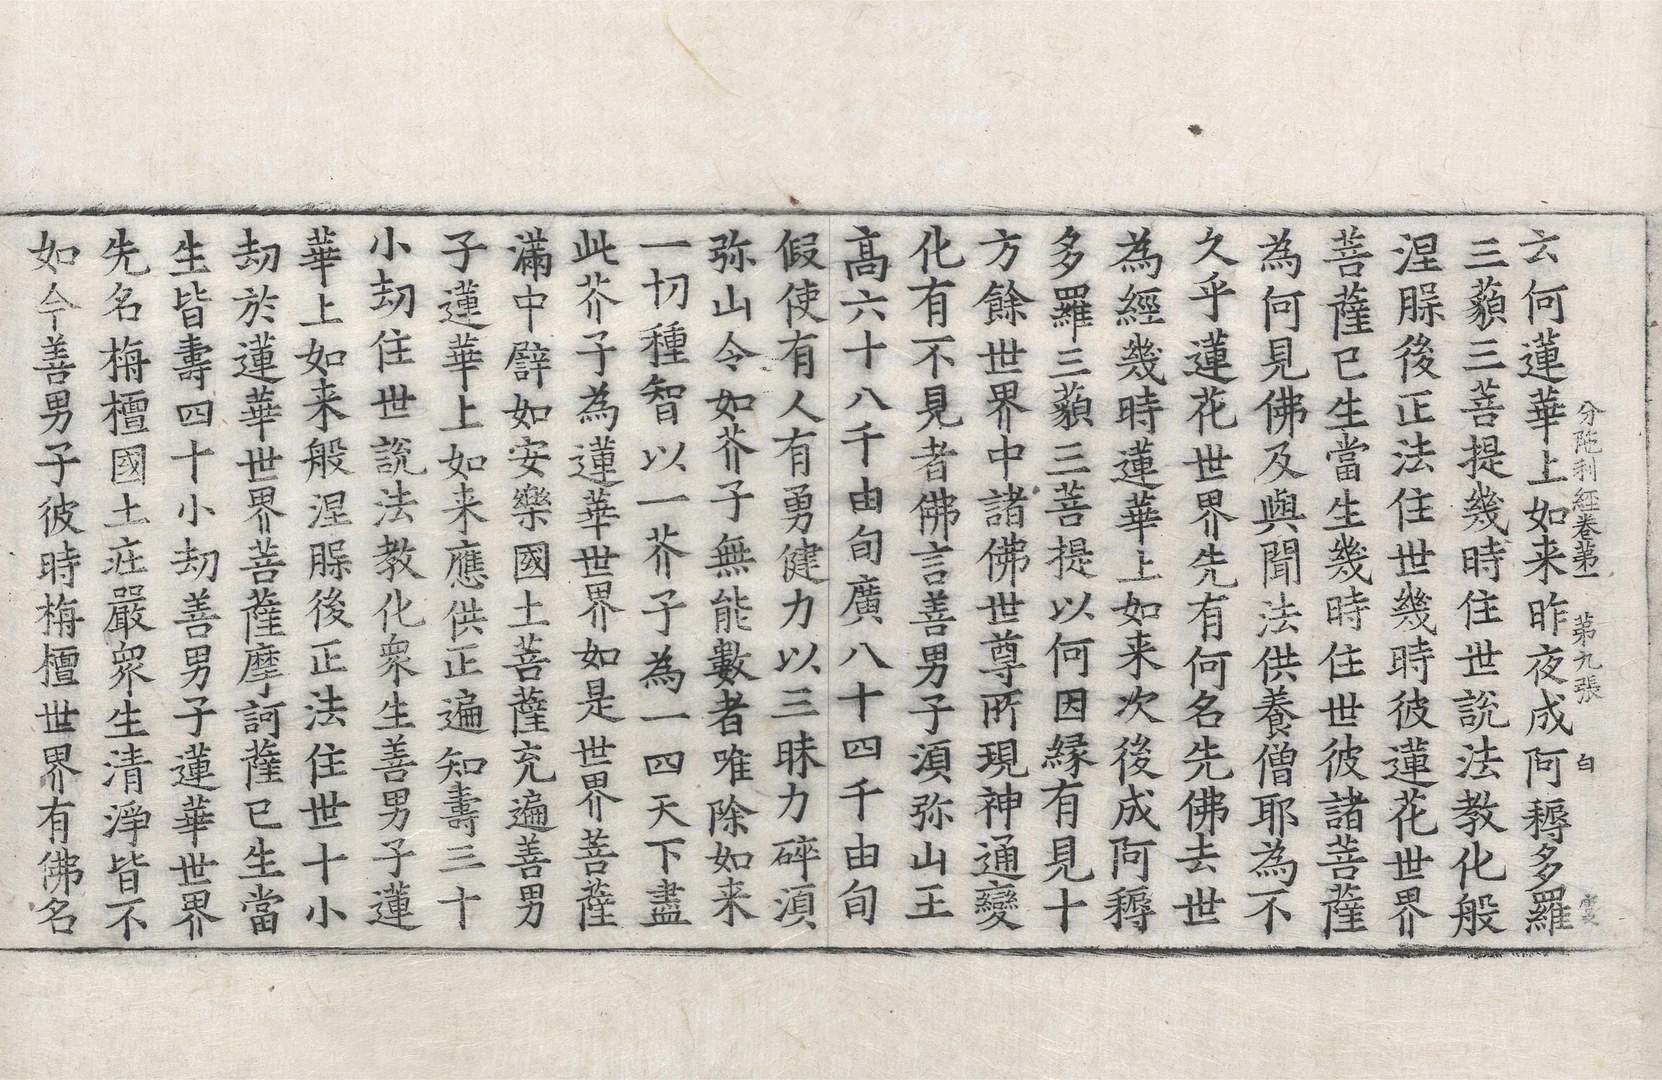 分陁利經卷第一 第九張 白
云何蓮華上如来昨夜成阿耨多羅
三藐三菩提幾時住世說法教化般
涅脲後正法住世幾時彼蓮花世界
菩薩已生當生幾時住世彼諸菩薩
為何見佛及與聞法供養僧耶為不
久乎蓮花世界先有何名先佛去世
為經幾時蓮華上如来次後成阿耨
多羅三藐三菩提以何因緣有見十
方餘世界中諸佛世尊所現神通變
化有不見者佛言善男子湏弥山王
髙六十八千由旬廣八十四千由旬
假使有人有勇健力以三昧力碎湏
弥山令如芥子無能數者唯除如来
一切種智以一芥子為一四天下盡
此芥子為蓮華世界如是世界菩薩
滿中譬如安樂國土菩薩充遍善男
子蓮華上如来應供正遍知壽三十
小劫住世說法教化衆生善男子蓮
華上如来般涅脲後正法住世十小
劫於蓮華世界菩薩摩訶薩已生當
生皆壽四十小劫善男子蓮華世界
先名栴檀國土莊嚴衆生清淨皆不
如今善男子彼時栴檀世界有佛名